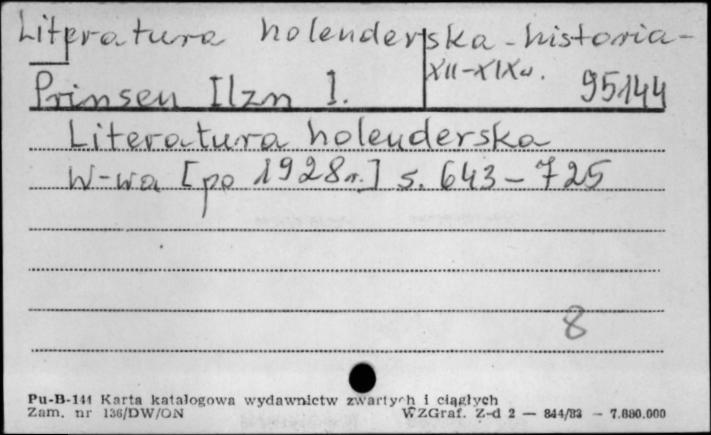 Literatura holenderska - historia -
XII-XIXw.
Prinsen Ilzn I. 95144
Literatura holenderska
W-wa [po 1928r.] s. 643-725
8
Pu-B-141 Karta katalogowa wydawnictw zwartych i ciągłych
Zam. nr 136/DW/ON WZGraf. Z-d 2 — 844/83 — 7.880.000